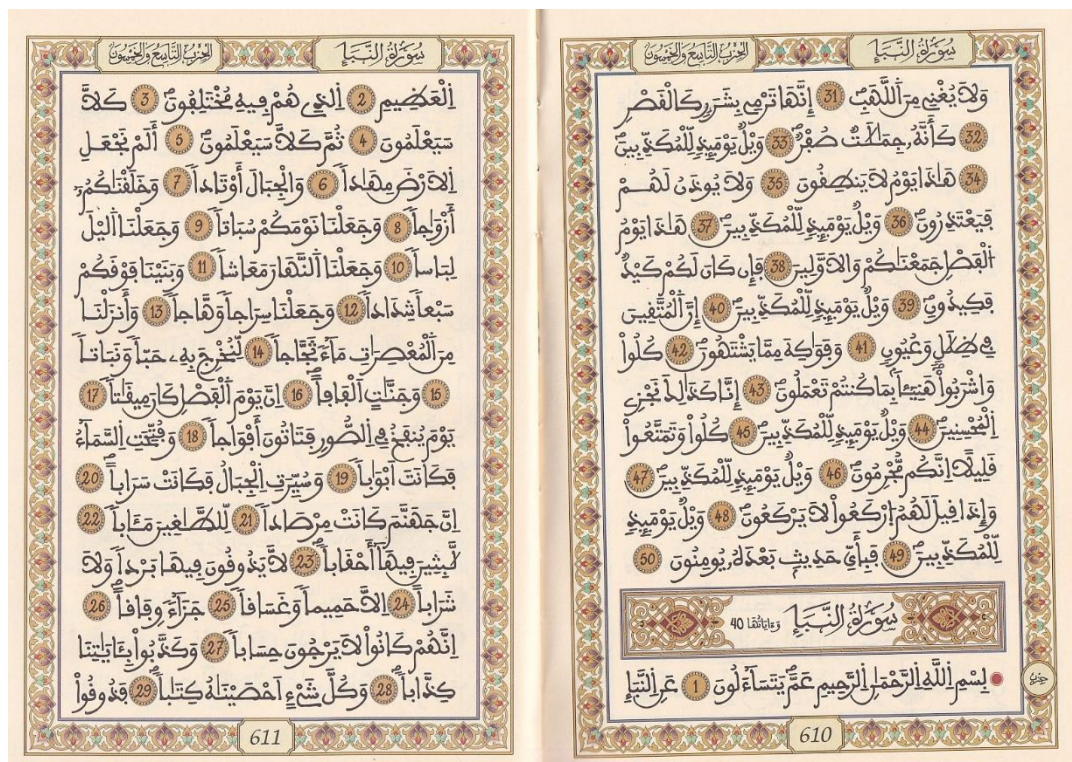 سُورَةُ النَّبَإِ الحِزْبُ التَّاسِعُ وَالخَمْسُونَ
وَلَا يُغْنِے مِنَ اَللَّهَبِ 31 إِنَّهَا تَرْمِے بِشَرَرٖ كَالْقَصْرِ
32 كَأَنَّهُۥ جِمَٰلَٰتٞ صُفْرٞ 33 وَيْلٞ يَوْمَئِذٖ لِّلْمُكَذِّبِينَ
34 هَٰذَا يَوْمُ لَا يَنطِقُونَ 35 وَلَا يُوذَنُ لَهُمْ
فَيَعْتَذِرُونَ 36 وَيْلٞ يَوْمَئِذٖ لِّلْمُكَذِّبِينَ 37 هَٰذَا يَوْمُ
اُلْفَصْلِ جَمَعْنَٰكُمْ وَالَاوَّلِينَ 38 فَإِن كَانَ لَكُمْ كَيْدٞ
فَكِيدُونِ 39 وَيْلٞ يَوْمَئِذٖ لِّلْمُكَذِّبِينَ 40 إِنَّ اَلْمُتَّقِينَ
فِے ظِلَٰلٖ وَعُيُونٖ 41 وَفَوَٰكِهَ مِمَّا يَشْتَهُونَ 42 كُلُواْ
وَاشْرَبُواْ هَنِيٓـٔاَۢ بِمَا كُنتُمْ تَعْمَلُونَ 43 إِنَّا كَذَٰلِكَ نَجْزِے
اِلْمُحْسِنِينَ 44 وَيْلٞ يَوْمَئِذٖ لِّلْمُكَذِّبِينَ 45 كُلُواْ وَتَمَتَّعُواْ
قَلِيلاً اِنَّكُم مُّجْرِمُونَ 46 وَيْلٞ يَوْمَئِذٖ لِّلْمُكَذِّبِينَ 47
وَإِذَا قِيلَ لَهُمُ اُرْكَعُواْ لَا يَرْكَعُونَ 48 وَيْلٞ يَوْمَئِذٖ
لِّلْمُكَذِّبِينَ 49 فَبِأَيِّ حَدِيثِۢ بَعْدَهُۥ يُومِنُونَ 50
سُورَةُ النَّبَإِ وَءَايَاتُهَا 40
بِسْمِ اِللَّهِ اِلرَّحْمَٰنِ اِلرَّحِيمِ عَمَّ يَتَسَآءَلُونَ 1 عَنِ اِلنَّبَإِ
حزب
610
سُورَةُ النَّبَإِ الحِزْبُ التَّاسِعُ وَالخَمْسُونَ
اِلْعَظِيمِ 2 اِلذِے هُمْ فِيهِ مُخْتَلِفُونَ 3 كَلَّا
سَيَعْلَمُونَ 4 ثُمَّ كَلَّا سَيَعْلَمُونَ 5 أَلَمْ نَجْعَلِ
اِلَارْضَ مِهَٰداٗ 6 وَالْجِبَالَ أَوْتَاداٗ 7 وَخَلَقْنَٰكُمُۥٓ
أَزْوَٰجاٗ 8 وَجَعَلْنَا نَوْمَكُمْ سُبَاتاٗ 9 وَجَعَلْنَا اَليْلَ
لِبَاساٗ 10 وَجَعَلْنَا اَلنَّهَارَ مَعَاشاٗ 11 وَبَنَيْنَا فَوْقَكُمْ
سَبْعاٗ شِدَاداٗ 12 وَجَعَلْنَا سِرَاجاٗ وَهَّاجاٗ 13 وَأَنزَلْنَا
مِنَ اَلْمُعْصِرَٰتِ مَآءٗ ثَجَّاجاٗ 14 لِّنُخْرِجَ بِهِۦ حَبّاٗ وَنَبَاتاٗ
15 وَجَنَّٰتٍ اَلْفَافاً 16 اِنَّ يَوْمَ اَلْفَصْلِ كَانَ مِيقَٰتاٗ 17
يَوْمَ يُنفَخُ فِے اِلصُّورِ فَتَاتُونَ أَفْوَاجاٗ 18 وَفُتِّحَتِ اِلسَّمَآءُ
فَكَانَتَ اَبْوَٰباٗ 19 وَسُيِّرَتِ اِلْجِبَالُ فَكَانَتْ سَرَاباً 20
اِنَّ جَهَنَّمَ كَانَتْ مِرْصَاداٗ 21 لِّلطَّٰغِينَ مَـَٔاباٗ 22
لَّٰبِثِينَ فِيهَآ أَحْقَاباٗ 23 لَّا يَذُوقُونَ فِيهَا بَرْداٗ وَلَا
شَرَاباً 24 اِلَّا حَمِيماٗ وَغَسَاقاٗ 25 جَزَآءٗ وِفَاقاً 26
اِنَّهُمْ كَانُواْ لَا يَرْجُونَ حِسَاباٗ 27 وَكَذَّبُواْ بِـَٔايَٰتِنَا
كِذَّاباٗ 28 وَكُلَّ شَےْءٍ اَحْصَيْنَٰهُ كِتَٰباٗ 29 فَذُوقُواْ
611